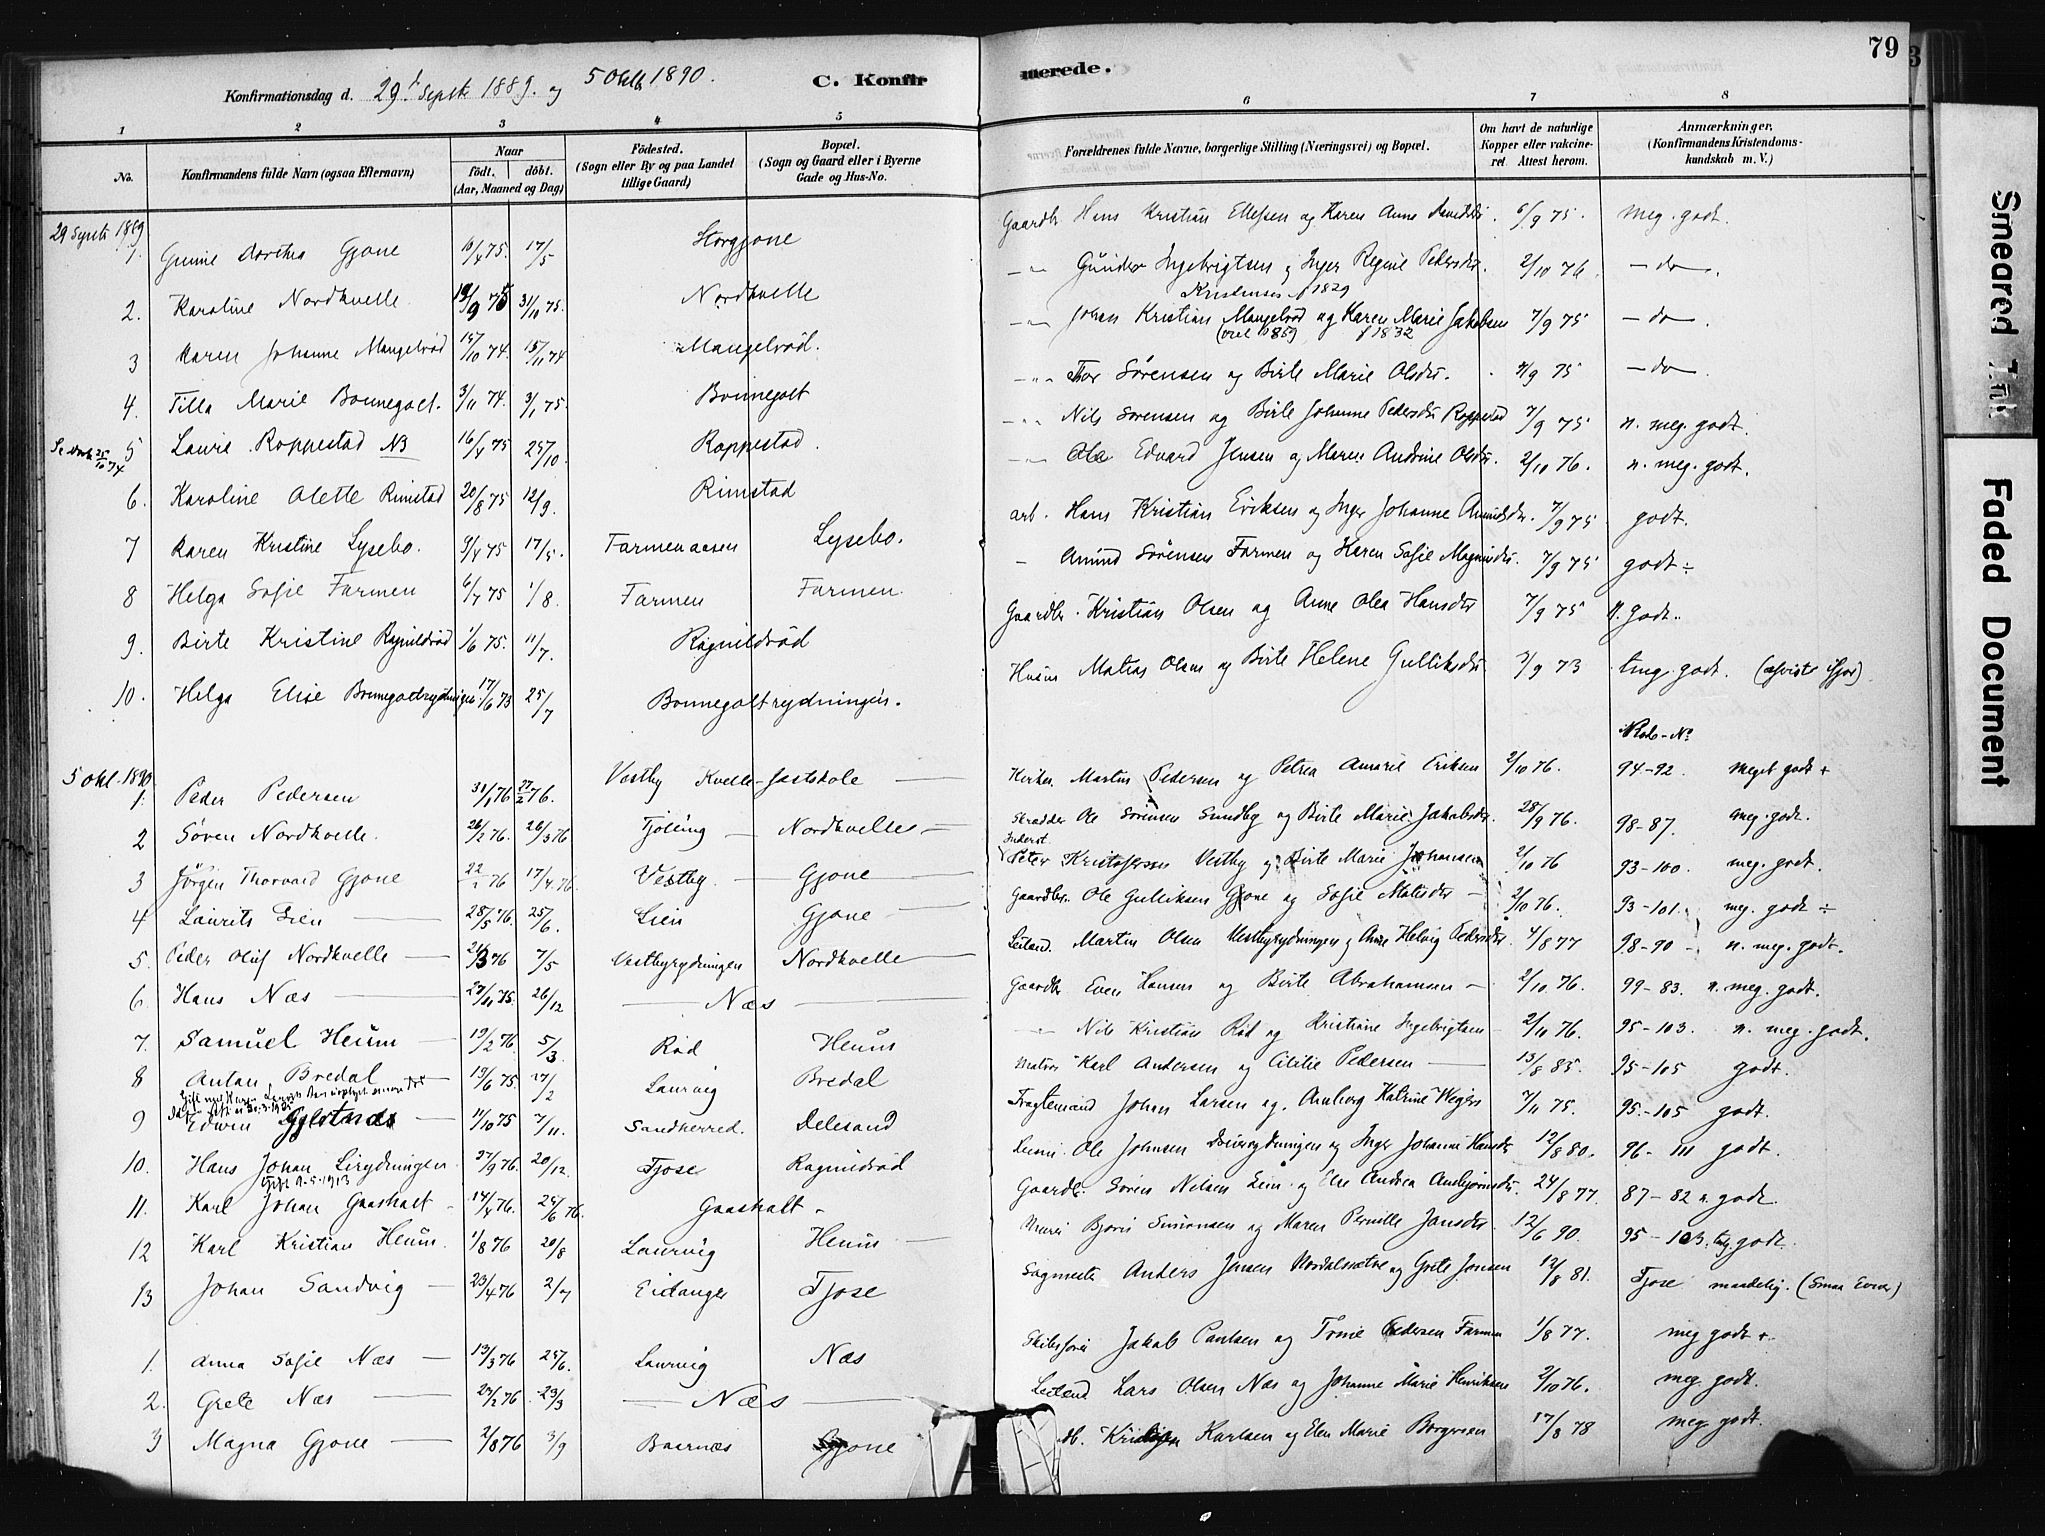 79
Konfirmationsdag d. 29de Septr. 1889. og 5 Oktb 1890.
C. Konfirmerede.
1 2 3 4 5 6 7 8
No.
Konfirmandens fulde Navn (ogsaa Efternavn)
Naar
födt. döbt.
(Aar, Maaned og Dag)
Födested.
(Sogn eller By og paa Landet
tillige Gaard)
Bopæl.
(Sogn og Gaard eller i Byerne
Gade og Hus-No.
Forældrenes fulde Navne, borgerlige Stilling (Næringsvei) og Bopæl.
Om havt de naturlige
Kopper eller vakcine-
ret. Attest herom.
Anmærkninger.
(Konfirmandens Kristendoms-
kundskab m. V.)
29 Septr 1889
1. Gunne Dorthea Gjone 10/4 75. 17/5 Storgjone Gaardbr Hans Kristian Ellefsen og Karen Anne 6/9 75. meg. godt.
2. Karoline Nordkvelle 19/9 75 31/10 75. Nordkvelle -"- Gunder Ingebrigtsen og Inger Regine Pedersdtr. 2/10 76. - do -.
Kristensen f 1829
3 Karen Johanne Mangelröd 15/10 74. 15/11 74 Mangelröd. -"- Johan Kristian Mangelröd og Karen Marie Jakobsen 7/9 75 - do -.
f 1832
4. Tilla Marie Bonnegolt. 3/11 74. 3/1 75. Bonnegolt -"- Thor Sörensen og Birte Marie Olsdtr. 7/9 75 - do -
5 Laurie Roppestad NB 16/4 75 25/10. Roppestad. -"- Nils Sörensen og Birte Johanne Pedersdtr Roppestad 7/9 75 n. meg. godt.
6. Karoline Olette Rimstad 20/8 75 12/9. Rimstad -"- Ole Edvard Jensen og Maren Andrine Olsdtr. 2/10 76. n. meg. godt.
7 Karen Kristine Lysebo. 9/4 75 17/5. Farmenaasen Lysebo. arb. Hans Kristian Eriksen og Inger Johanne Amundsdtr. 7/9 75 godt.
8 Helga Sofie Farmen 6/7 75 1/8. Farmen Farmen. - Amund Sörensen Farmen og Karen Sofie Magnusdtr. 7/9 75 godt ÷
9. Birte Kristine Ragnildröd 1/6 75. 11/7. Ragnildröd Gaardbr. Kristian Olsen og Anne Olea Hansdtr 7/9 75 n. godt.
10. Helga Elise Bonnegoltrydningen 17/6 73 25/7 Bonnegoltrydningen. Husm Matias Olsen og Birte Helene Gulliksdtr 7/9 73 tmg. godt. (afviste ifjor)
5 Okt. 1890
1. Peder Pedersen 31/1 76 27/2 76. Vestby Kvelle-fastskole Kirkes. Martin Pedersen og Petrea Amarie Eriksen 2/10 76. 94-92. meget godt +
2 Sören Nordkvelle. 26/2 76. 26/3 76 Tjölling Nordkvelle Skrædder Ole Sörensen Sundby og Birte Marie Jakobsdtr. 28/9 76. 98-87. meg. godt.
3 Jörgen Thorvald Gjone 22/1 76 17/4 76. Vestby. Gjone Inderst Peter Kristofersen Vestby og Birte Marie Johansen 2/10 76 93-100. meg. godt.
4 Laurits Lien 28/5 76. 25/6. Lien Gjone Gaardbr. Ole Gulliksen Gjone og Sofie Matisdtr 2/10 76. 93-101. meg. godt ÷
5. Peder Oluf Nordkvelle 21/3 76 7/5 Vestbyrydningen Nordkvelle Leilænd. Martin Olsen Vestbyrydningen og Anne Helvig Pedersdtr 4/8 77 98-90 - n. meg. godt.
6. Hans Næs 27/11 75. 26/12 Næs Gaardbr Even Hansen og Birte Abrahamsen 2/10 76. 99-83. n. meg. godt.
7. Samuel Heum 19/2 76. 5/3. Röd Heum -"- Nils Kristian Röd og Kristiane Ingebrigtsen 2/10 76. 95-103. n. meg. godt.
8 Anton Bredal 19/6 75. 27/2 Laurvig Bredal Matros Karl Andersen og Cicilie Pedersen 13/8 85. 95-105 godt.
9 Edwin 11/10 75 7/11. Sandherred. Delesand Fragtemand Johan Larsen og Amborg Katrine Wegers 7/11 75. 95-105 godt.
10. Hans Johan Lirydningen 27/9 76. 20/12. Tjose Ragnildröd Ole Johnsen og Inger Johanne Hansdtr 12/8 80. 96-111 godt.
gift 9-5-1913
11. Karl Johan Gaasholt 14/4 76. 25/6 76. Gaasholt Gaardbr. Sören Nilsen Lien og Else Andrea Ambjörnsdtr. 24/8 77. 87-82 n. godt
12 Karl Kristian Heum. 1/8 76 20/8 Laurvig Heum Murer Björn Simonsen og Maren Pernille Jansdtr. 12/6 90. 95-103. tlg. godt.
13 Johan Sandvig 23/4 76 2/7 Eidanger Tjose Sagmester Anders Jensen og Grete Jonsen 12/8 81. Tjose maadelig. (Smaa Evner)
1. Anna Sofie Næs 13/3 76 25/6. Laurvig Næs Skibsförer Jakob Paulsen og Trine Pedersen Farmen 1/8 77. meg godt +
2. Grete Næs 27/2 76 23/3 Næs Leilænd Lars Olsen Næs og Johanne Marie Henriksen 2/10 76. meg. godt.
3 Magna Gjone 2/8 76 3/9 Baarnæs Gjone Karlsen og Elen Marie Borgersen 17/8 78 meg. godt.
Smeared Ink
Faded Document